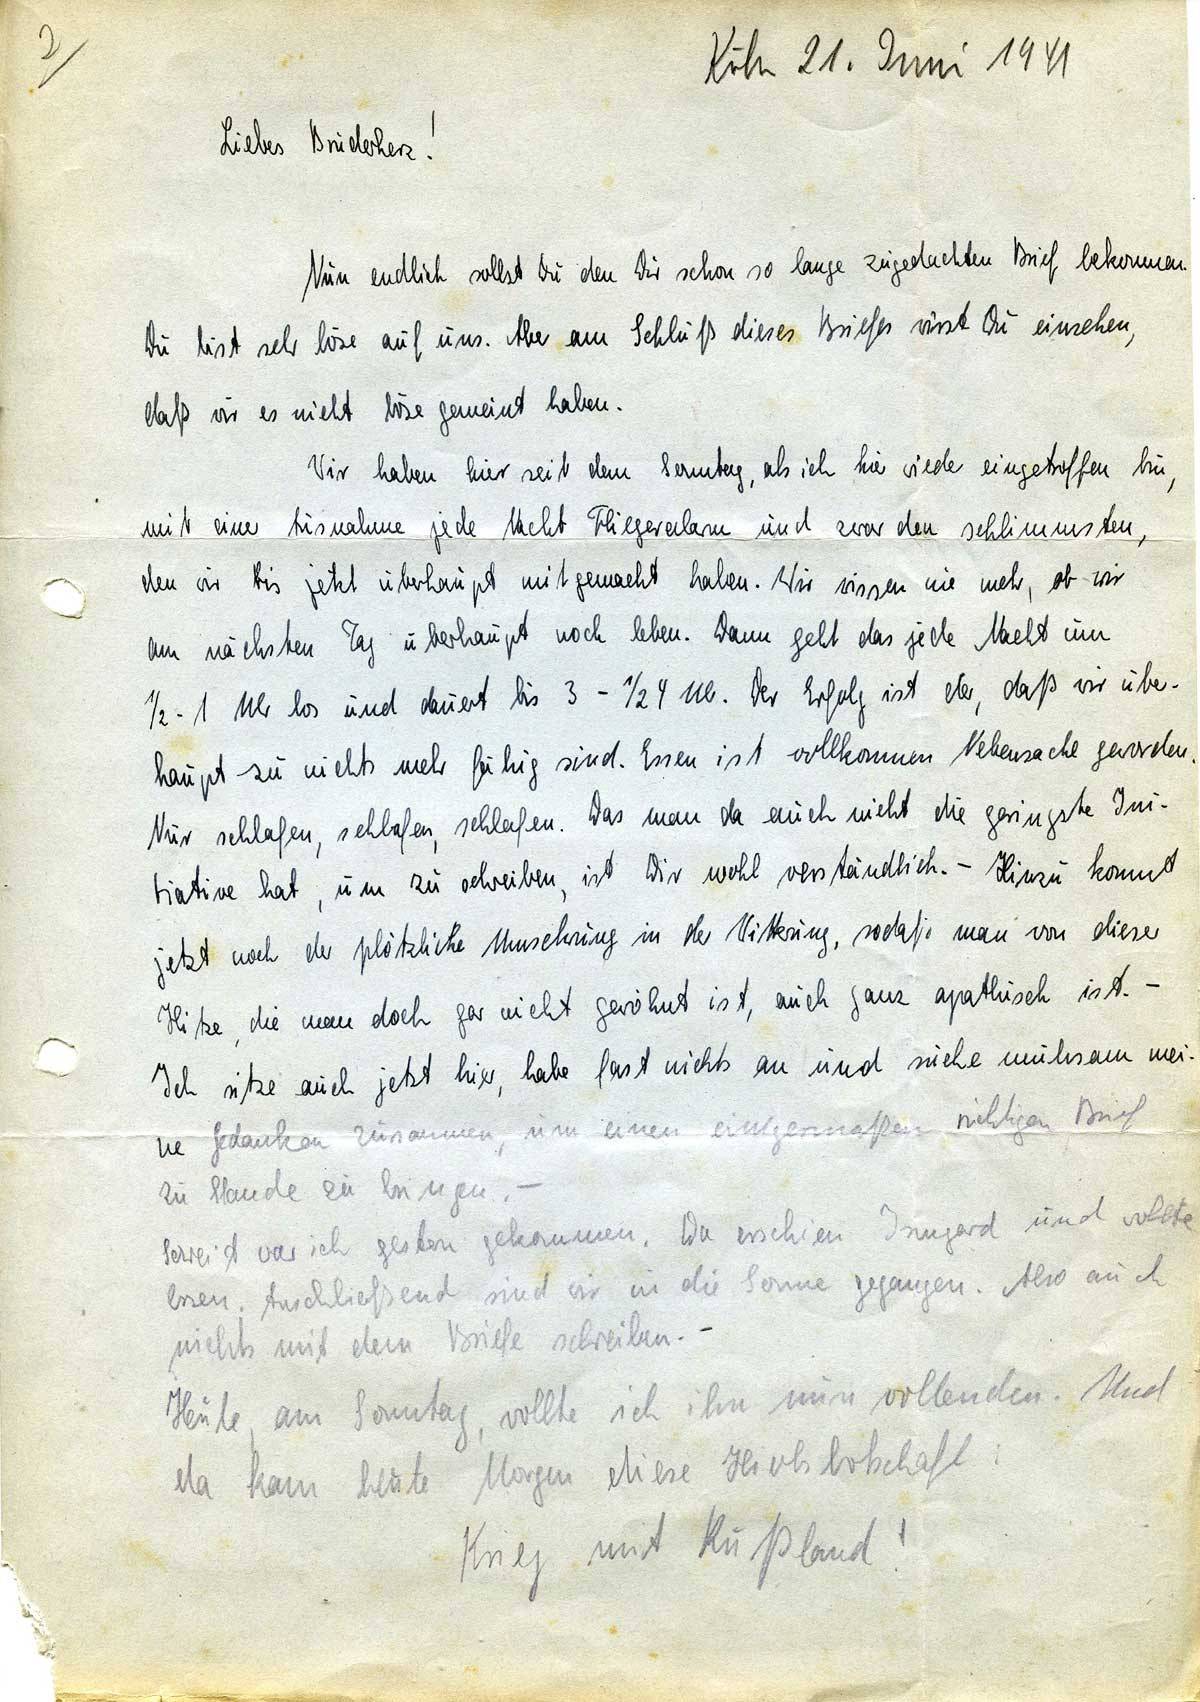 2/
Köln 21. Juni 1941
Liebes Brüderherz!
Nun endlich sollst Du den Dir schon so lange zugedachten Brief bekommen.
Du bist sehr böse auf uns. Aber am Schluß dieses Briefes wirst Du einsehen,
daß wir es nicht böse gemeint haben.
Wir haben hier seit dem Sonntag, als ich hier wieder eingetroffen bin,
mit einer Ausnahme jede Nacht Fliegeralarm und zwar den schlimmsten,
den wir bis jetzt überhaupt mitgemacht haben. Wir wissen nie mehr, ob wir
am nächsten Tag überhaupt noch leben. Dann geht das jede Nacht um
1/2 - 1 Uhr los und dauert bis 3 - 1/2 4 Uhr. Der Erfolg ist der, daß wir über-
haupt zu nichts mehr fähig sind. Essen ist vollkommen Nebensache geworden.
Nur schlafen, schlafen, schlafen. Das man da auch nicht die geringste Ini-
tiative hat, um zu schreiben, ist Dir wohl verständlich. - Hinzu kommt
jetzt noch der plötzliche Umschwung in der Witterung, sodaß man von dieser
Hitze, die man doch gar nicht gewöhnt ist, auch ganz apathisch ist. -
Ich sitze auch jetzt hier, habe fast nichts an und suche mühsam mei-
ne Gedanken zusammen, um einen einigermaßen richtigen Brief
zu Stande zu bringen. -
Soweit war ich gestern gekommen. Da erschien Irmgard und wollte
essen. Anschließend sind wir in die Sonne gegangen. Also auch
nichts mit dem Briefe schreiben. -
Heute, am Sonntag, wollte ich ihn nun vollenden. Und
da kam heute Morgen diese Hiobsbotschaft:
Krieg mit Rußland!